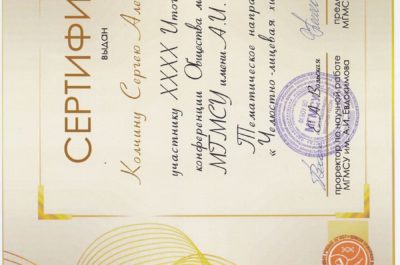 СЕРТИФИ
выдан
Колчину Сергею Але
участнику XXXX Итог
конференции Общества м
МГМСУ имени А.И.
Тематическое напра
« Челюстно-лицевая
проректор по научной работе
МГМСУ им. А.И. Евдокимова
пред
МГМСУ